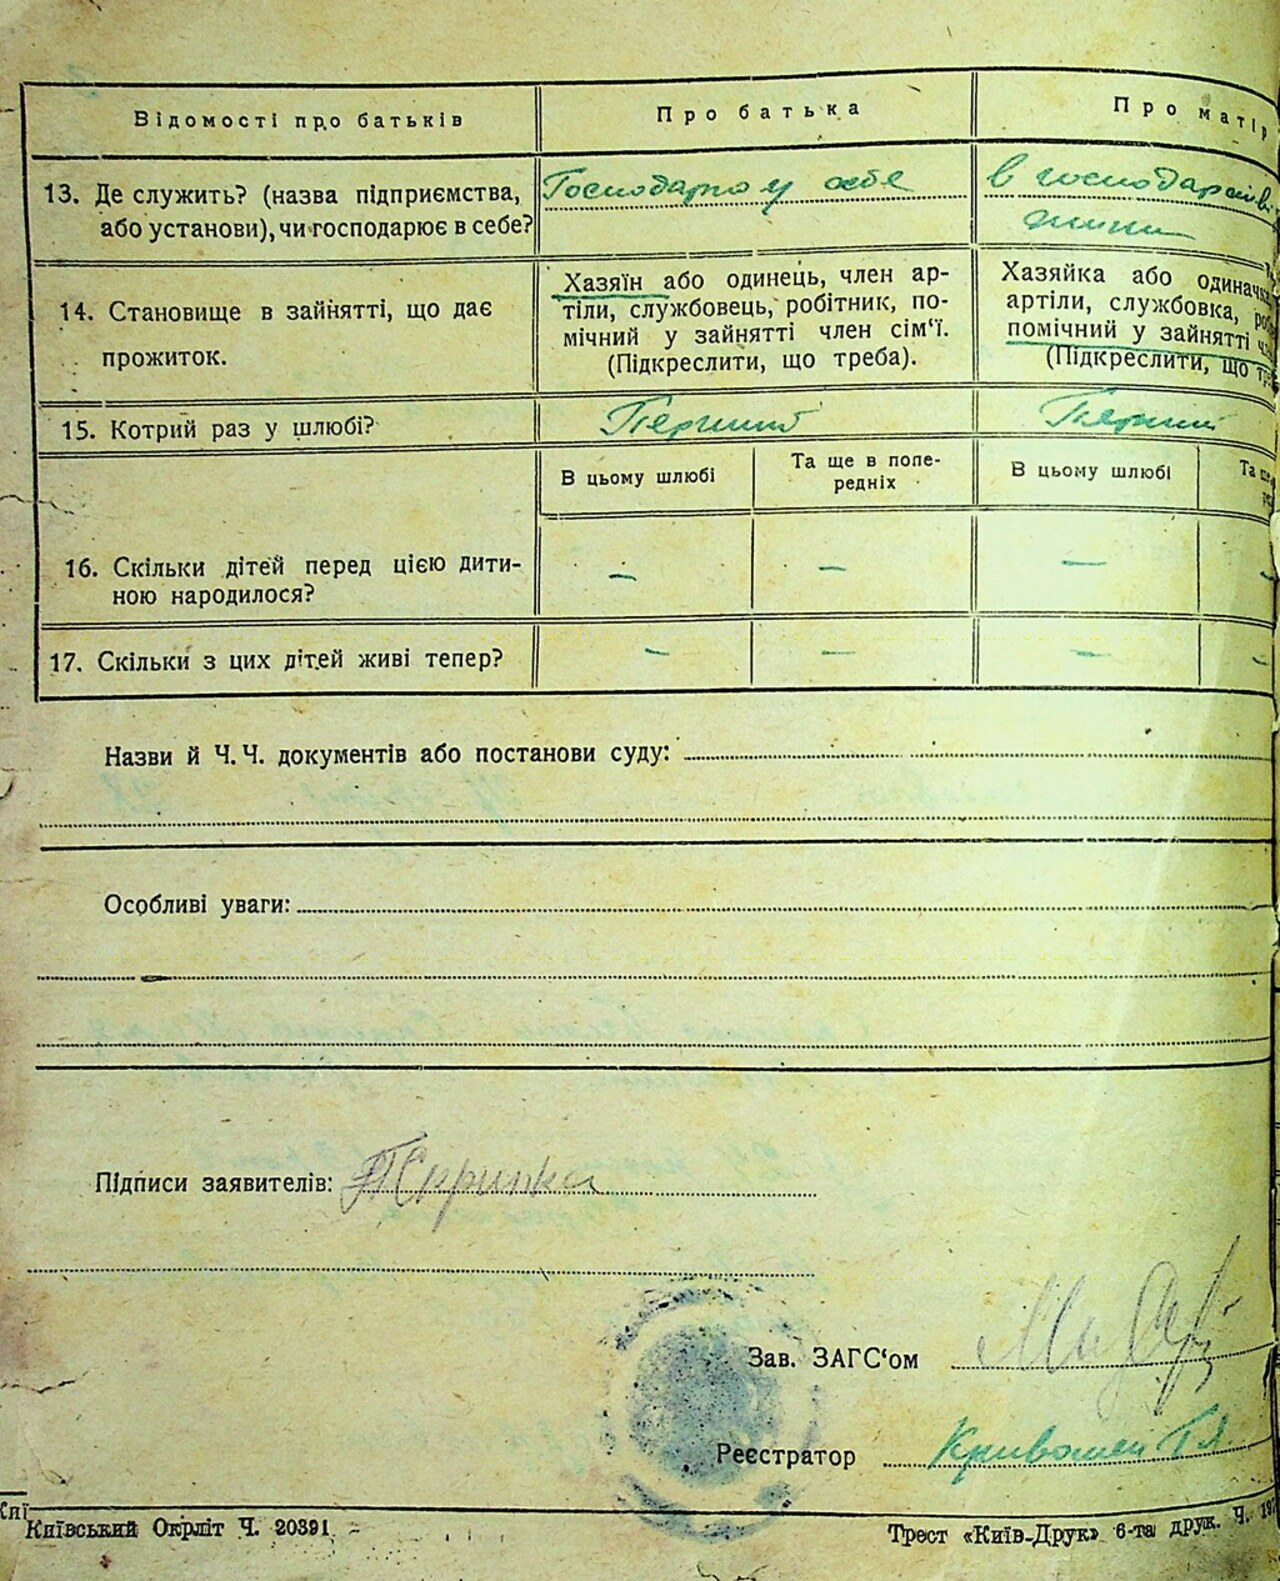 Відомості про батьків Про батька Про матір
13. Де служить? (назва підприємства, або установи), чи господарює в себе?
Господарю у себе
в господарстві
14. Становище в зайнятті, що дає прожиток.
Хазяїн або одинець, член ар-
тіли, службовець, робітник, по-
мічний у зайнятті член сім‘ї.
(Підкреслити, що треба).
Хазяйка або одиначка
артіли, службовка,
помічний у зайнятті
(Підкреслити, що
15. Котрий раз у шлюбі? Перший Перший
В цьому шлюбі Та ще в попе-
редніх В цьому шлюбі Та ще
16. Скільки дітей перед цією дити-
ною народилося? — — — —
17. Скільки з цих дітей живі тепер? — — — —
Назви й Ч. Ч. документів або постанови суду:
Особливі уваги:
Підписи заявителів: Скрипка
Зав. ЗАГС‘ом
Реєстратор Кривошей Г Я
Київський Окрліт Ч. 20391
Трест «Київ-Друк» 6-та друк. Ч.